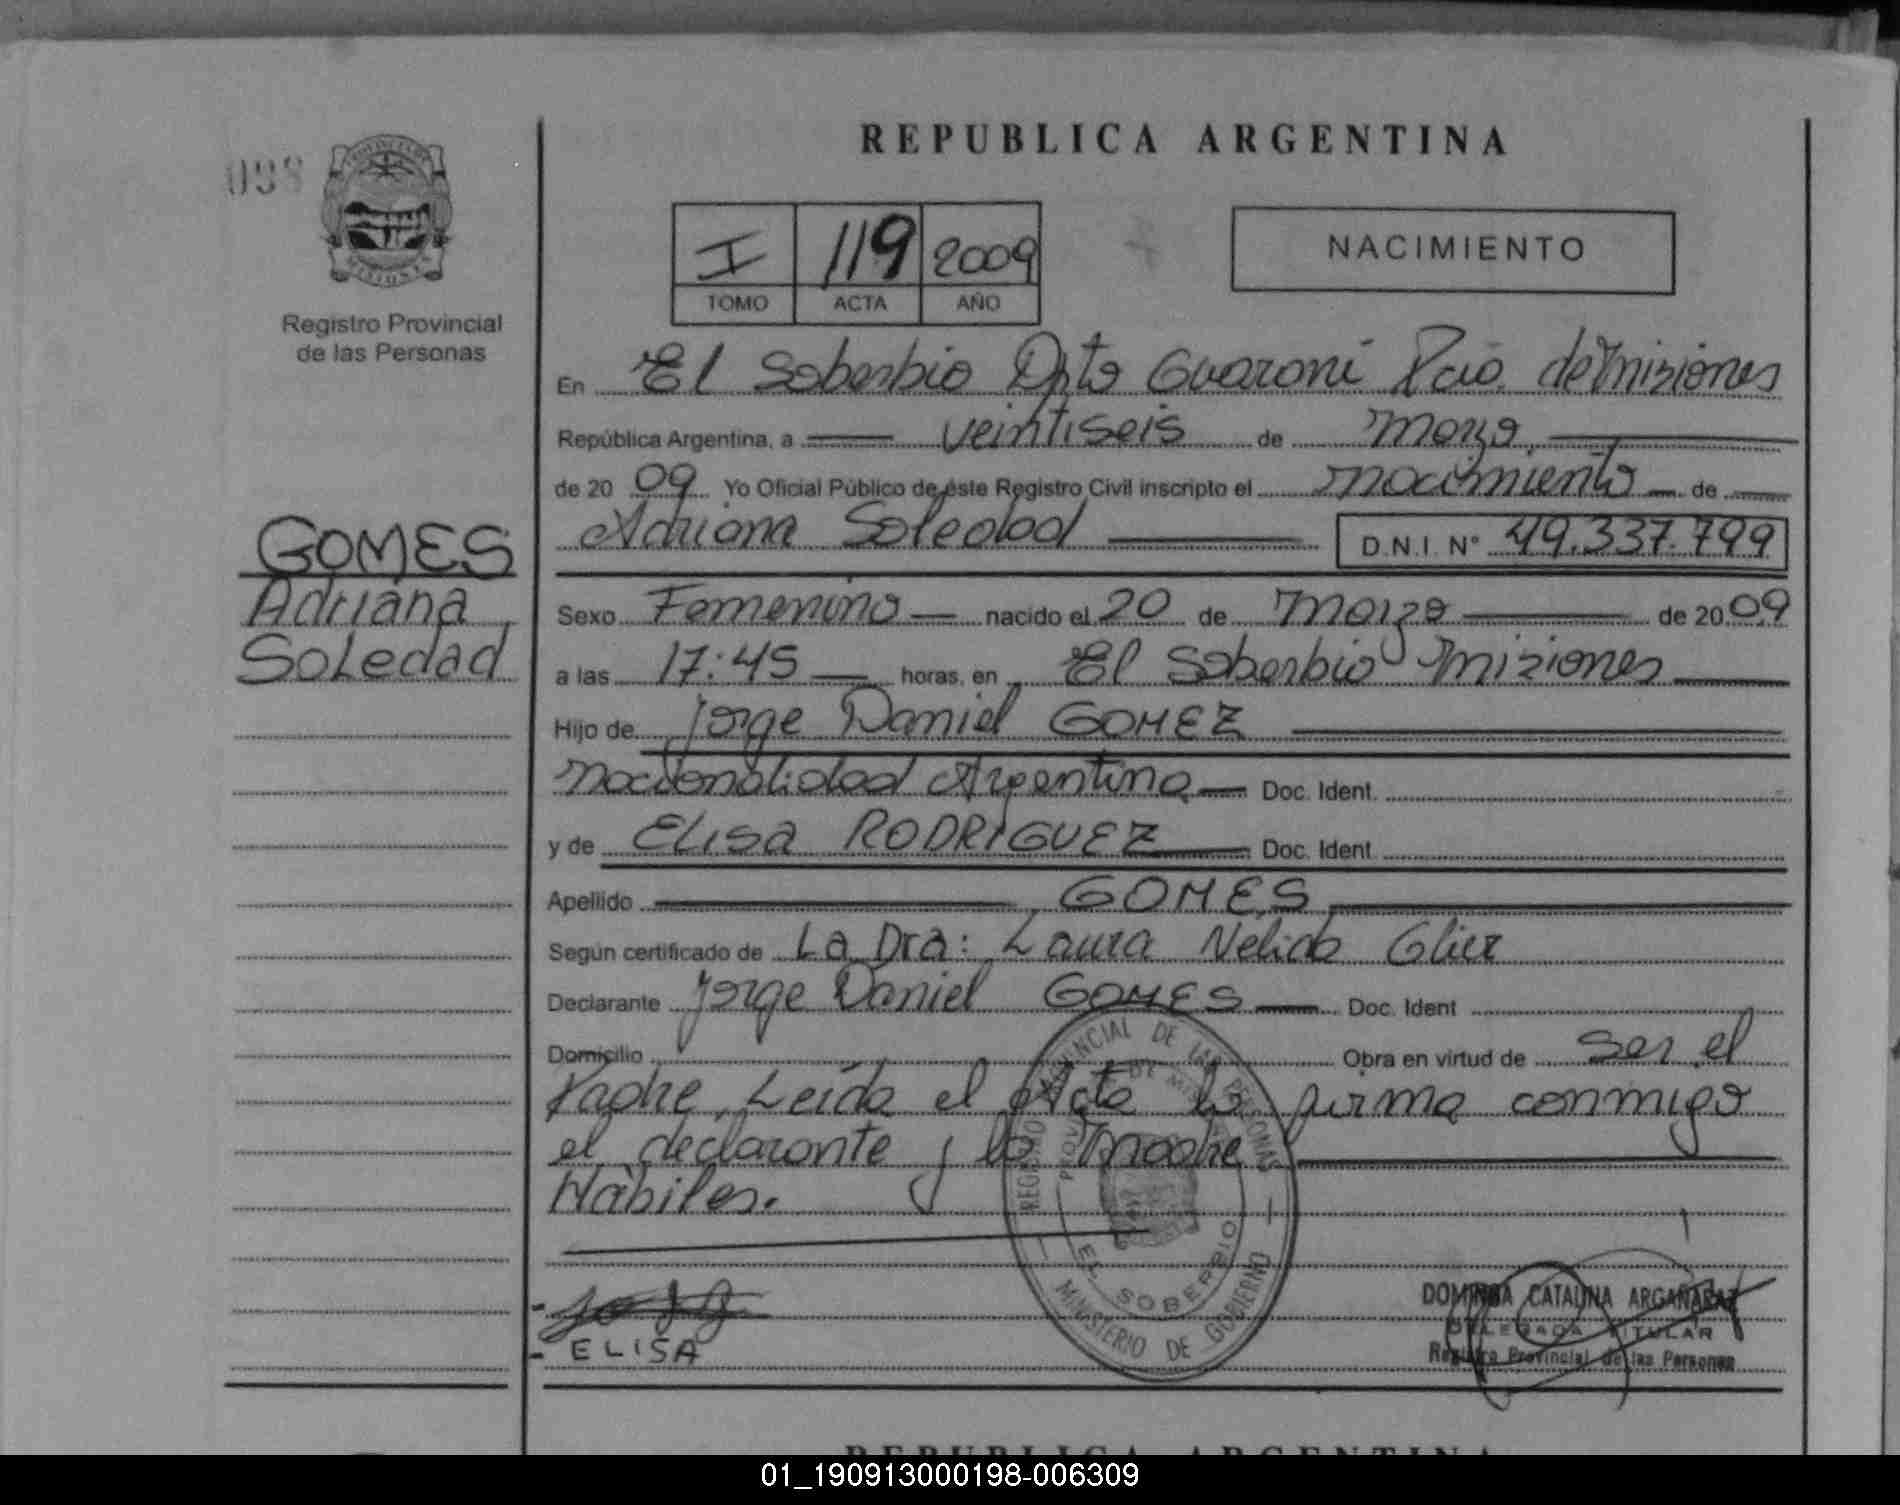 098
REPUBLICA ARGENTINA
I 119 2009
TOMO ACTA AÑO
NACIMIENTO
PROVINCIA DE
MISIONES
Registro Provincial
de las Personas
GOMES
Adriana
Soledad
En El Soberbio Dpto Guaraní Pcia. de Misiones
República Argentina, a veintiseis de Marzo
de 20 09 Yo Oficial Público de éste Registro Civil inscripto el nacimiento de
Adriana Soledad D.N.I. N° 49.337.799
Sexo Femenino nacido el 20 de Marzo de 20 09
a las 17:45 horas, en El Soberbio Misiones
Hijo de Jorge Daniel GOMEZ
nacionalidad Argentina Doc. Ident.
y de ELisa RODRIGUEZ Doc. Ident.
Apellido GOMES
Según certificado de La Dra: Laura Nelida Glier
Declarante Jorge Daniel GOMES Doc. Ident
Domicilio Obra en virtud de ser el
Padre, Leída el Acta la firma conmigo
el declarante y la Madre
Hábiles.
REGISTRO PROVINCIAL DE LAS PERSONAS
EL SOBERBIO
MINISTERIO DE GOBIERNO
- ELISA
DOMINGA CATALINA ARGAÑARAZ
DELEGADA TITULAR
Registro Provincial de las Personas
REPUBLICA ARGENTINA
01_190913000198-006309